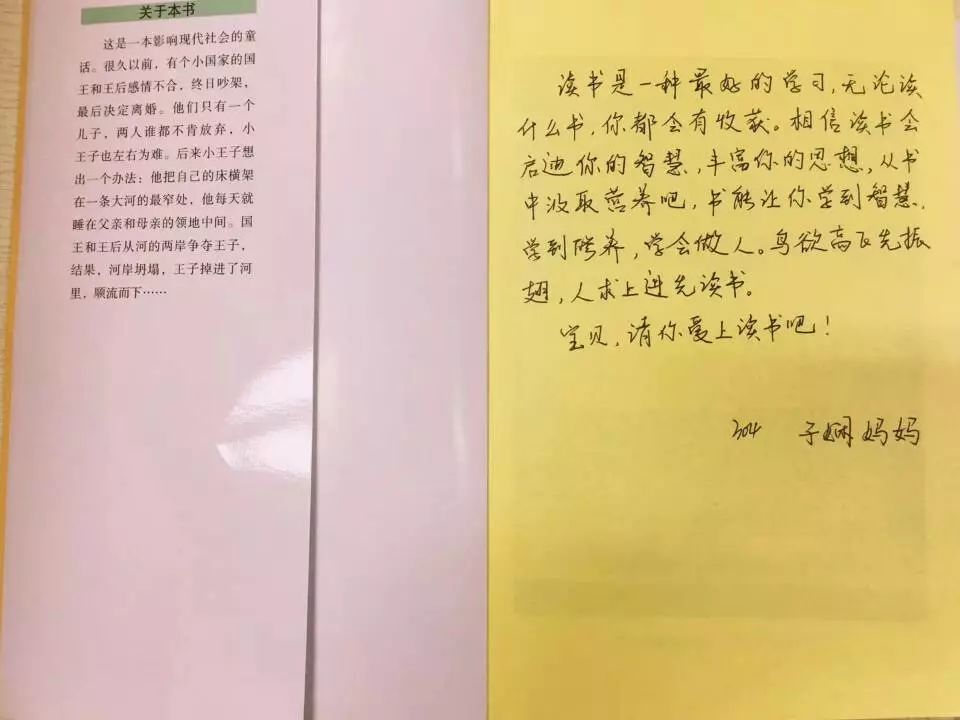 关于本书
这是一本影响现代社会的童
话。很久以前，有个小国家的国
王和王后感情不合，终日吵架，
最后决定离婚。他们只有一个
儿子，两人谁都不肯放弃，小
王子也左右为难。后来小王子想
出一个办法：他把自己的床横架
在一条大河的最窄处，他每天就
睡在父亲和母亲的领地中间。国
王和王后从河的两岸争夺王子，
结果，河岸坍塌，王子掉进了河
里，顺流而下……
读书是一种最好的学习，无论读
什么书，你都会有收获。相信读书会
启迪你的智慧，丰富你的思想，从书
中汲取营养吧，书能让你学到智慧，
学到修养，学会做人。鸟欲高飞先振
翅，人求上进先读书。
宝贝，请你爱上读书吧！
304 子娴妈妈